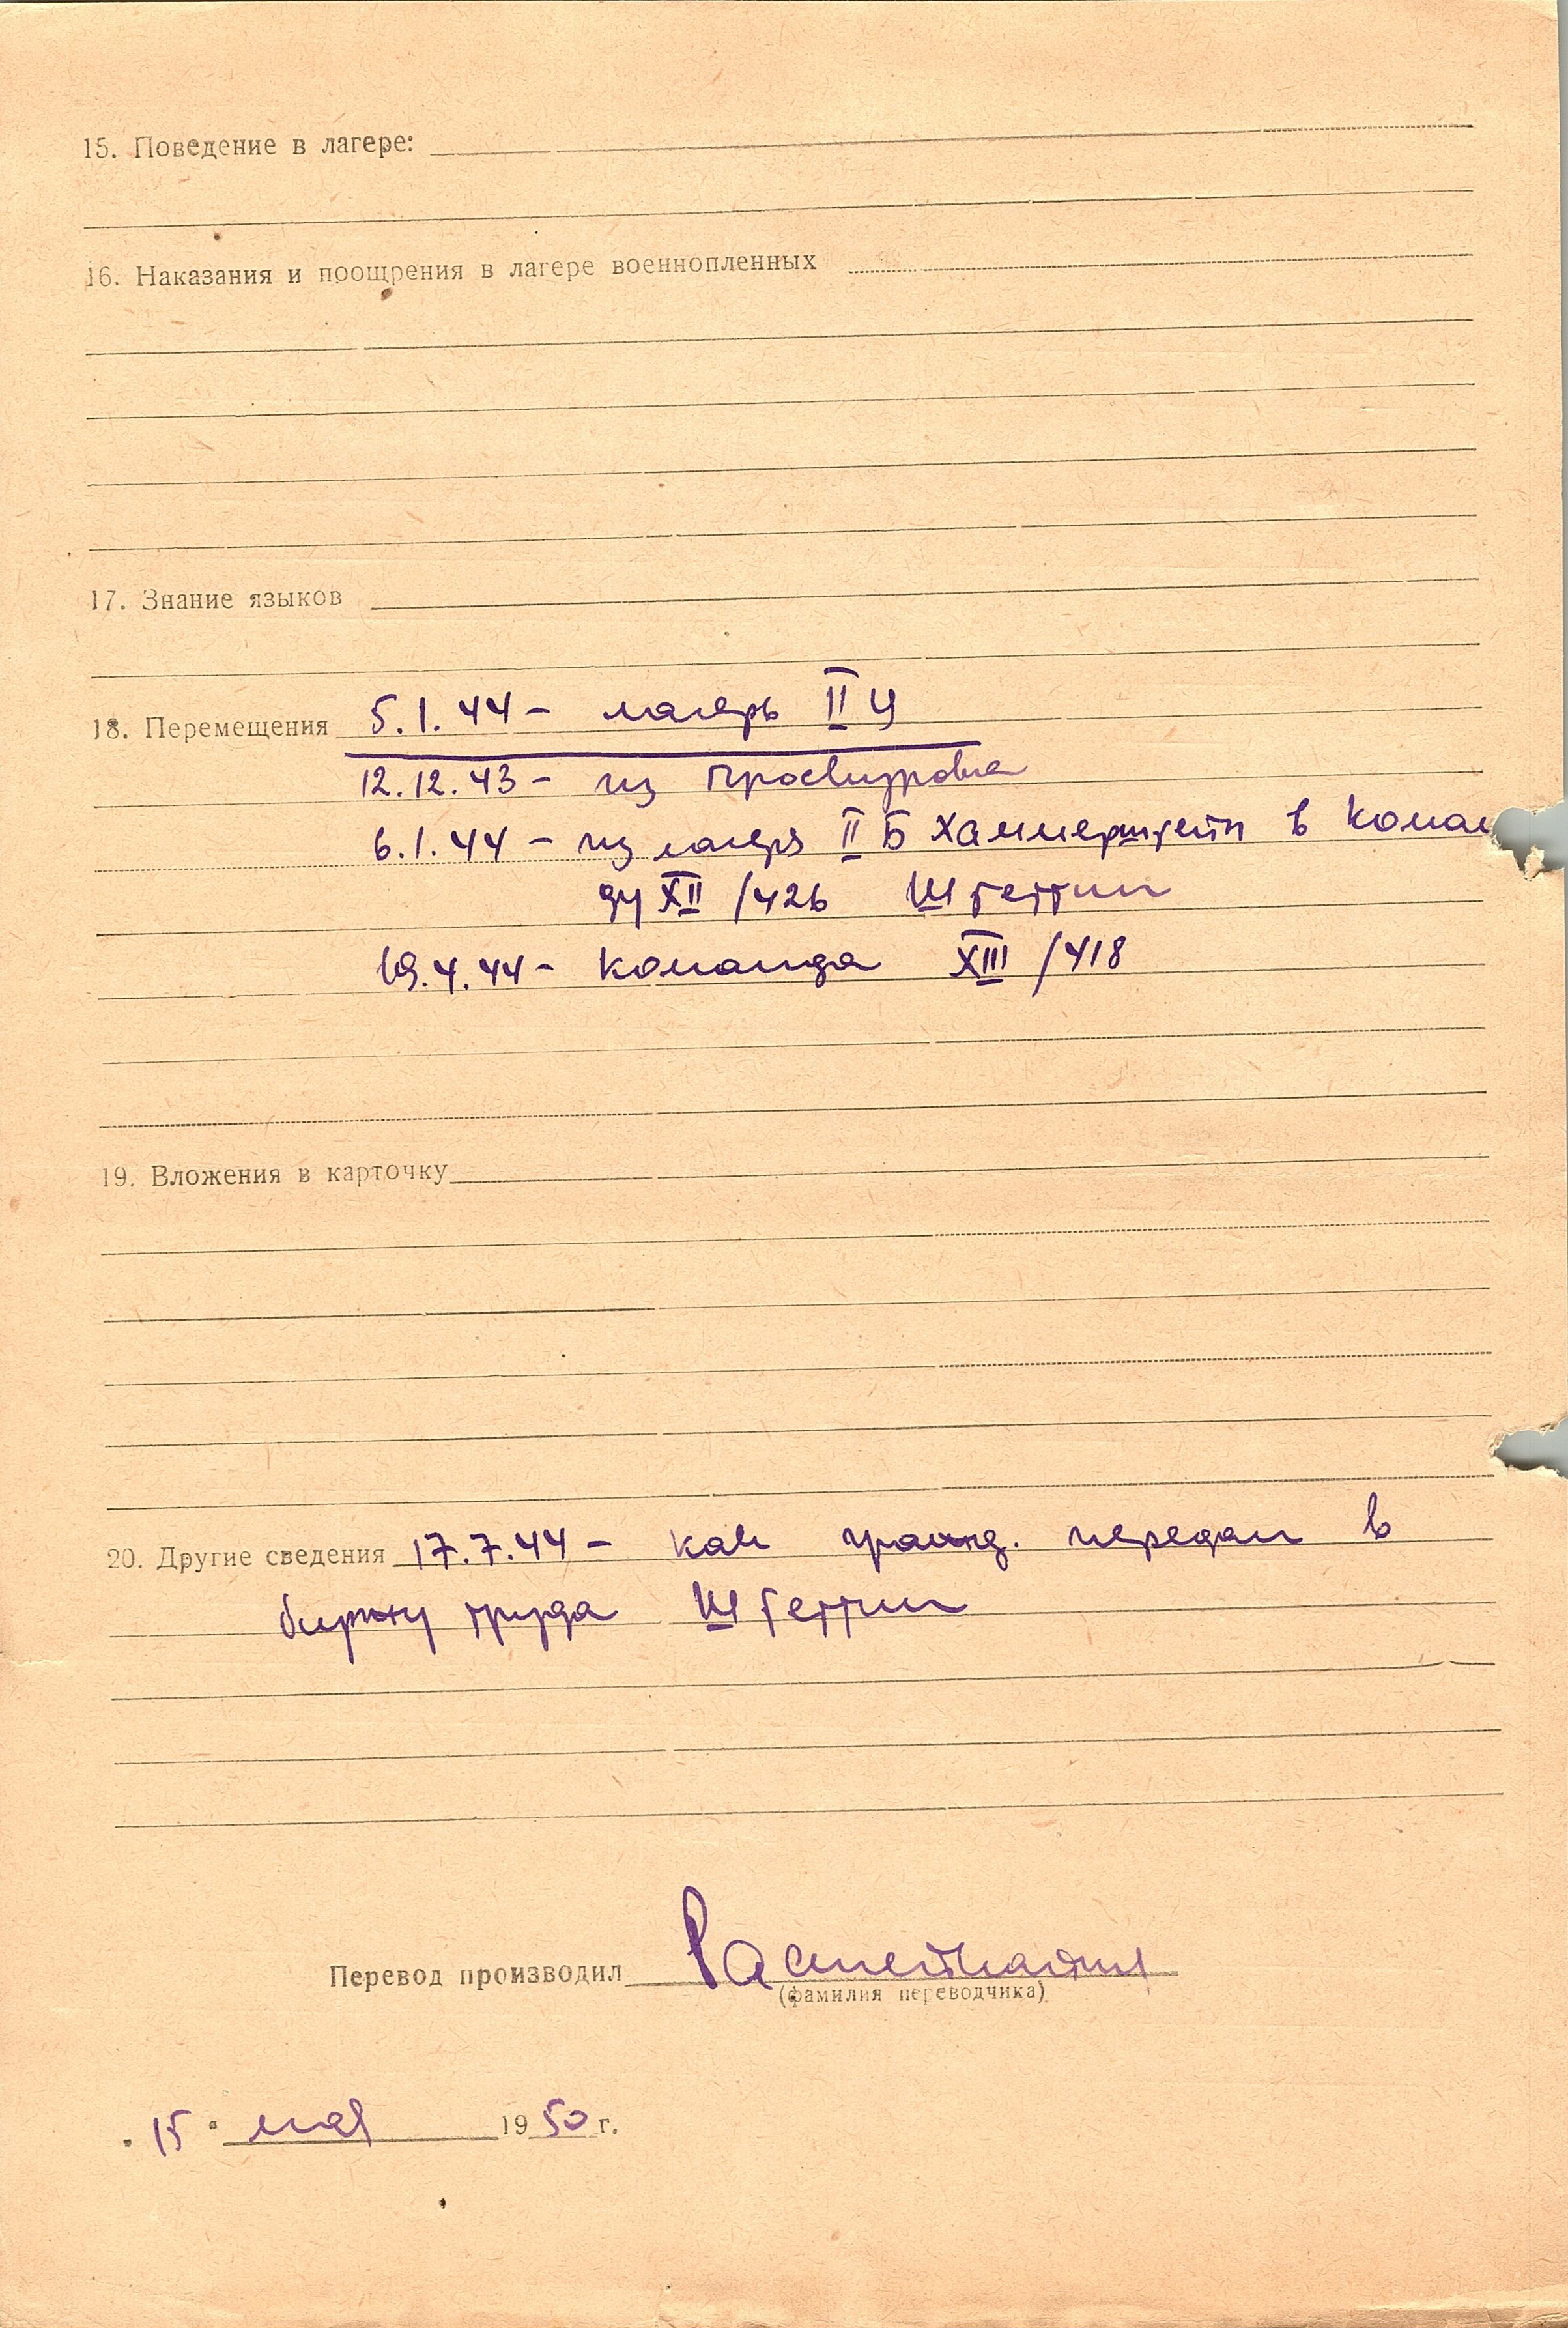 15. Поведение в лагере:
16. Наказания и поощрения в лагере военнопленных
17. Знание языков
18. Перемещения 5.1.44 - лагерь II Ц
12.12.43 - из Проскурова
6.1.44 - из лагеря II Б Хаммерштейн в коман
ду XII /426 Штеттин
19.4.44 - команда XIII /418
19. Вложения в карточку
20. Другие сведения 17.7.44 - как гражд. передан в
биржу труда Штеттин
Перевод производил
(фамилия переводчика)
"15" мая 1950 г.